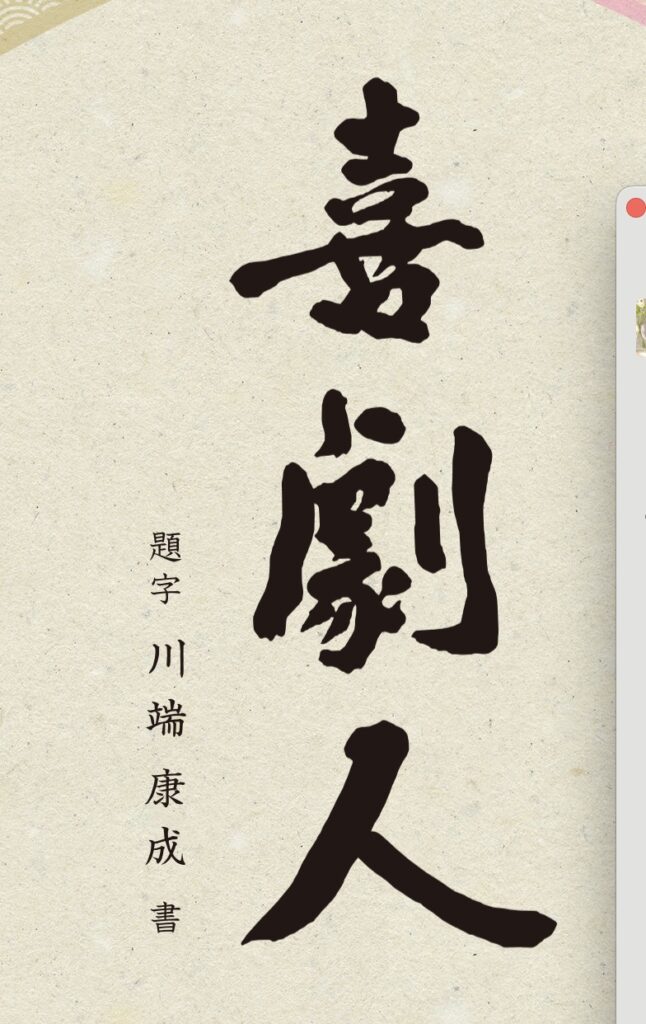 喜劇人
題字 川端康成 書